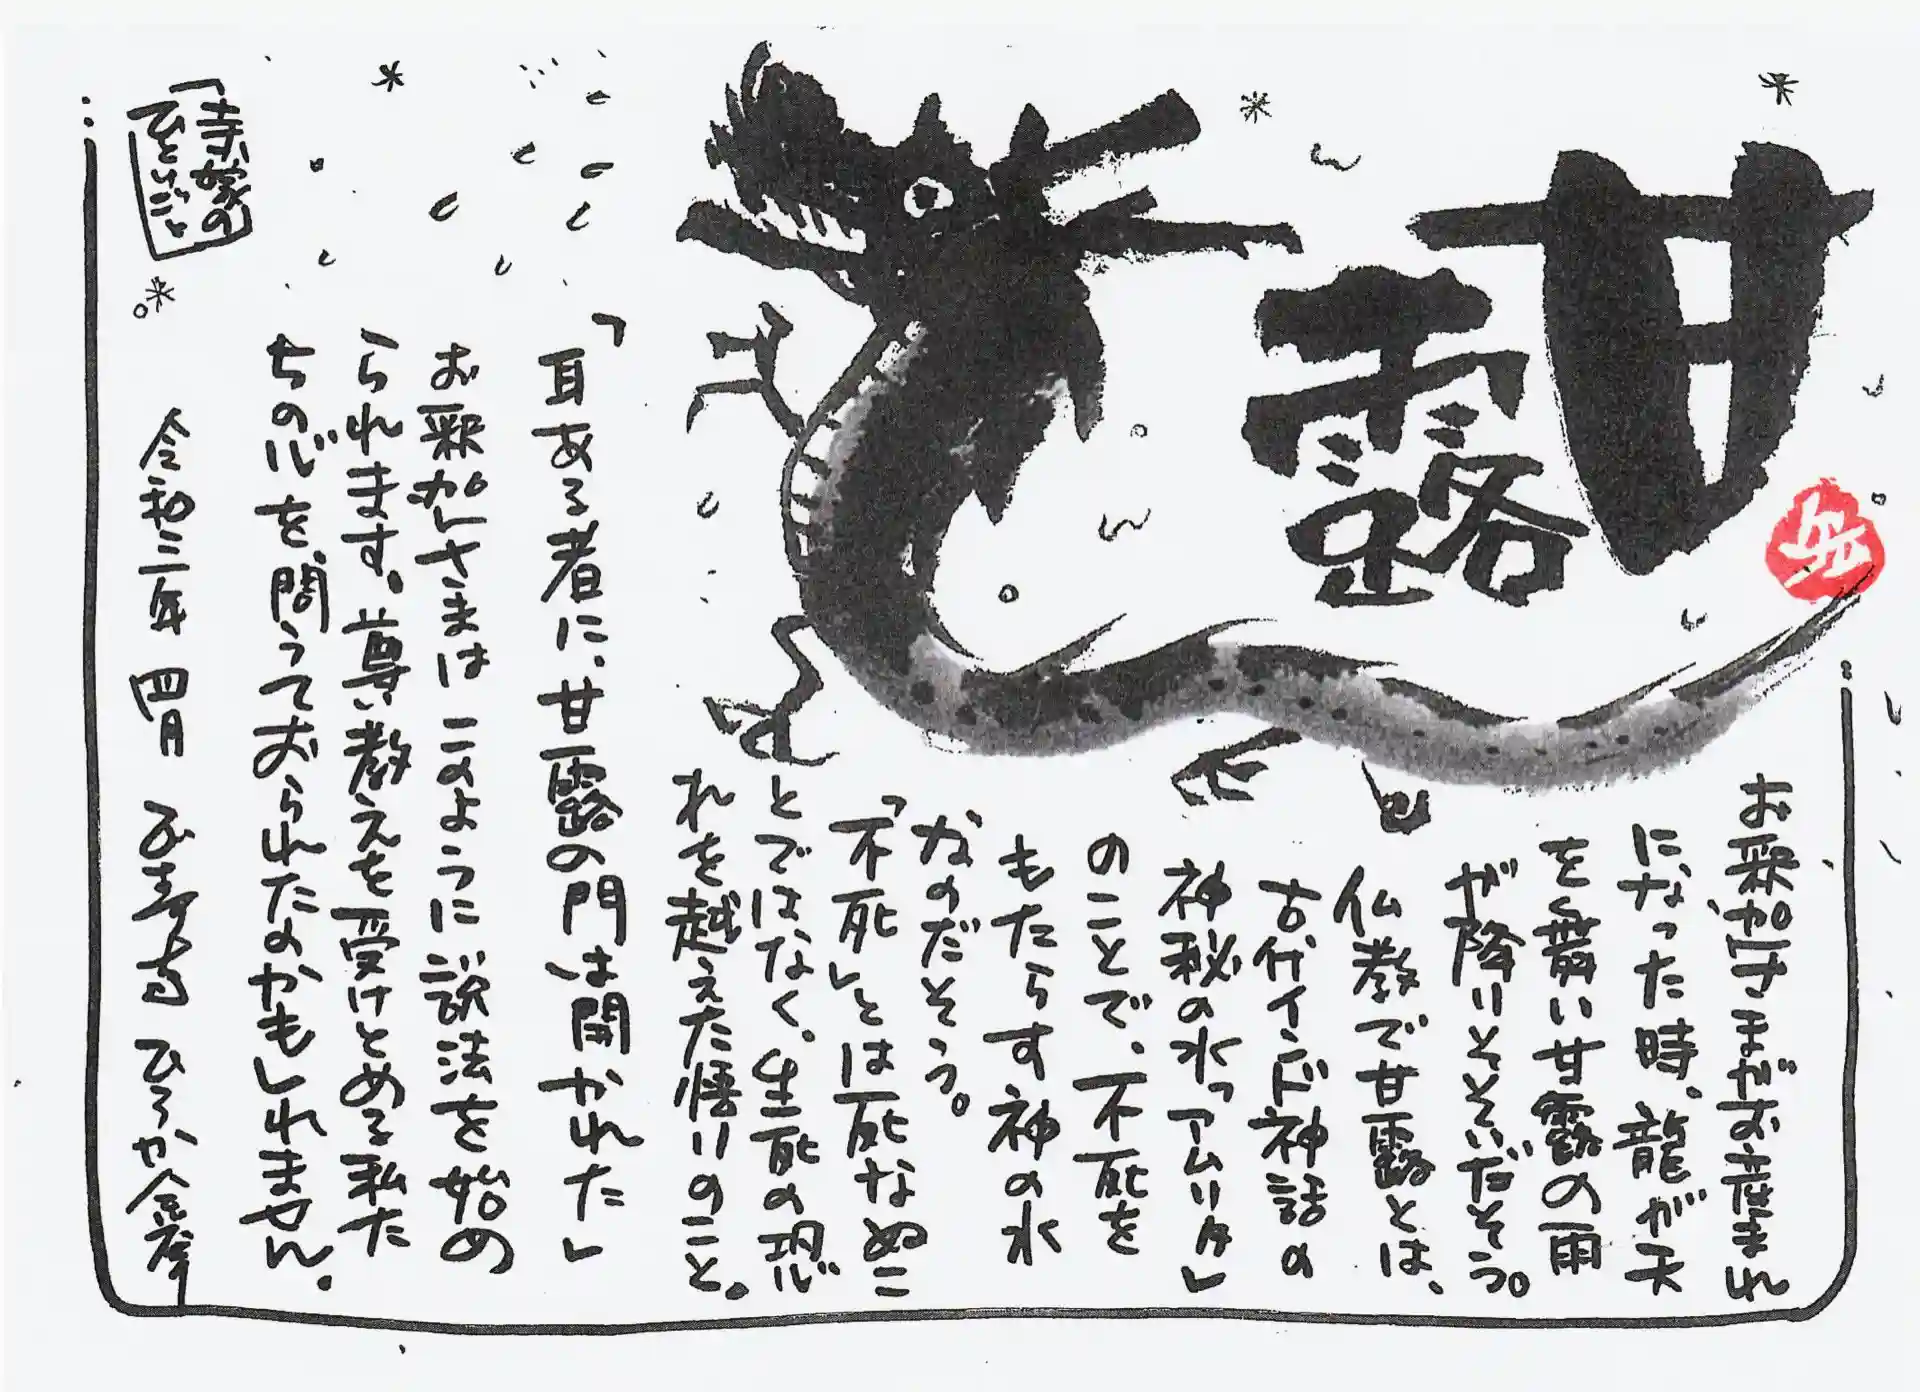 甘露
お釈迦さまがお産まれ
になった時、龍が天
を舞い甘露の雨
が降りそそいだそう。
仏教で甘露とは、
古代インド神話の
神秘の水「アムリタ」
のことで、不死を
もたらす神の水
なのだそう。
「不死」とは死なぬこ
とではなく、生死の恐
れを越えた悟りのこと。
「耳ある者に、甘露の門は開かれた」
お釈迦さまはこのように説法を始め
られます。尊い教えを受けとめる私た
ちの心を、問うておられたのかもしれません。
令和三年 四月
ひろか
「寺嫁の
ひとりごと」